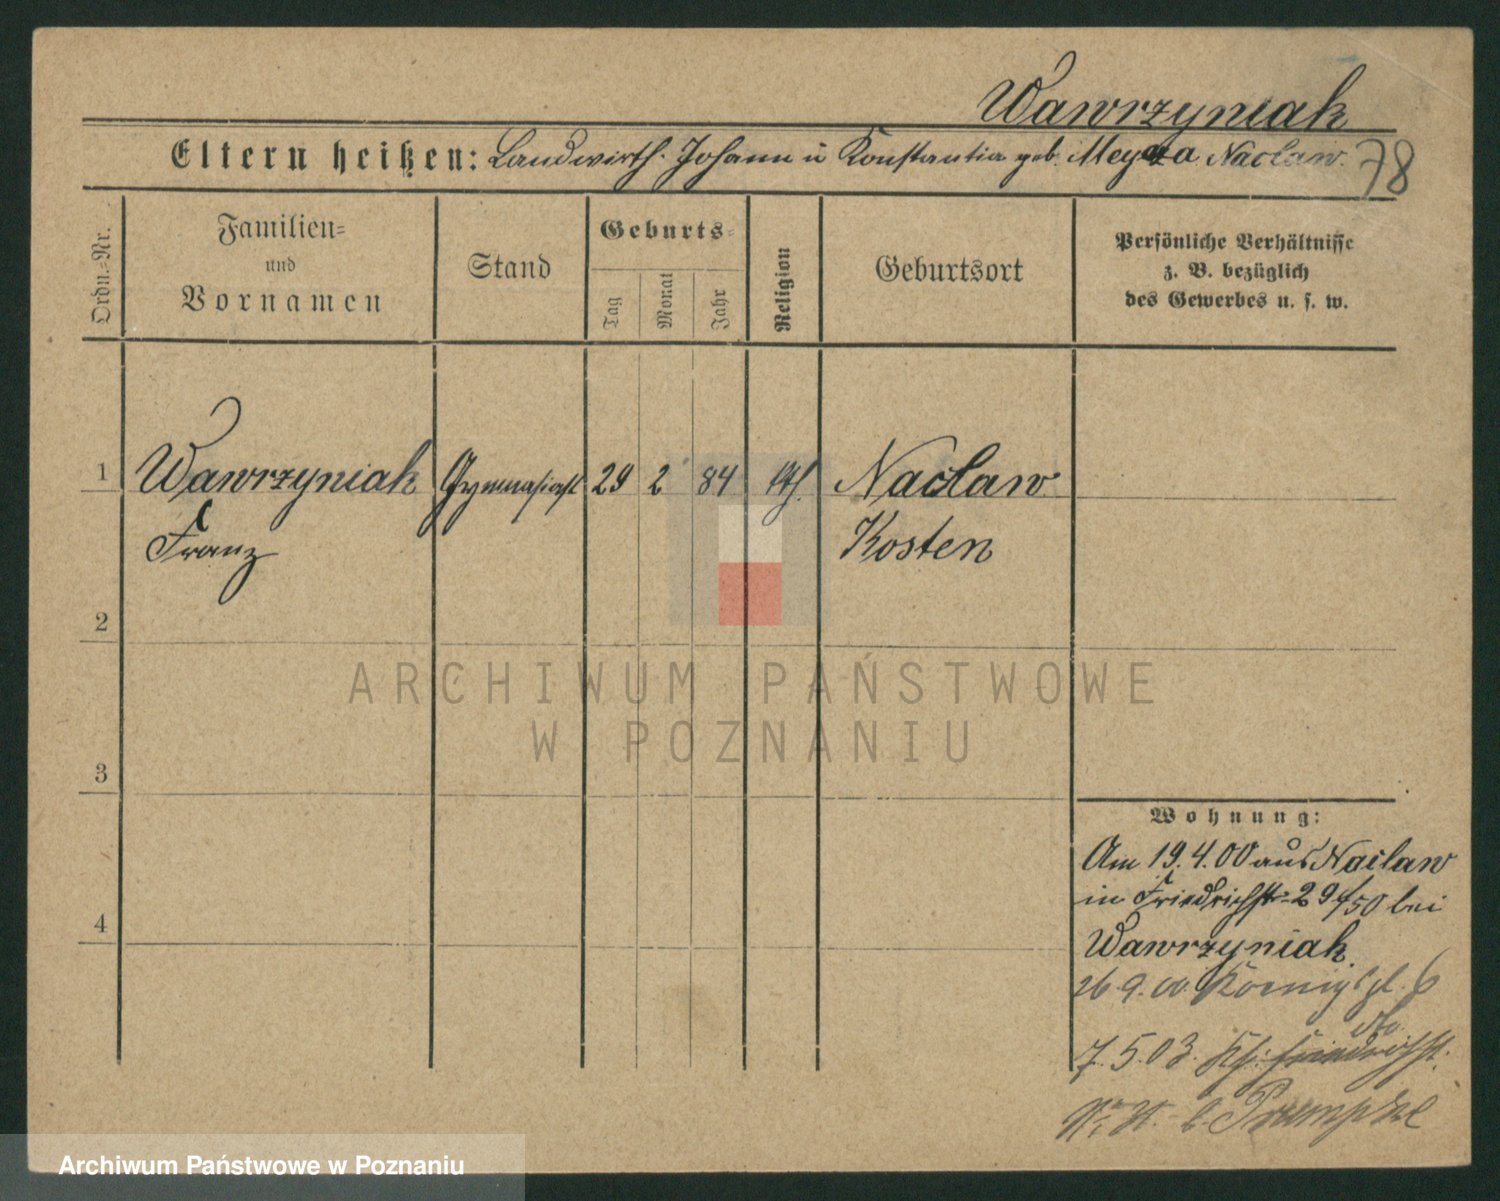 Wawrzyniak
Eltern heißen: Landwirth Johann u Konstantia geb. Meyza Naclaw.
78
Ordn.-Nr.
Familien-
und
Vornamen
Stand
Geburts-
Tag
Monat
Jahr
Religion
Geburtsort
Persönliche Verhältnisse
z. B. bezüglich
des Gewerbes u. s. w.
1 Wawrzyniak Gymnasiast 29 2 84 kth. Naclaw
Franz Kosten
2
3
4
Wohnung:
Am 19.4.00 aus Naclaw
in Friedrichstr. 29/50 bei
Wawrzyniak.
26.9.00 Königspl. 6
7.5.03.
ARCHIWUM PAŃSTWOWE
W POZNANIU
Archiwum Państwowe w Poznaniu